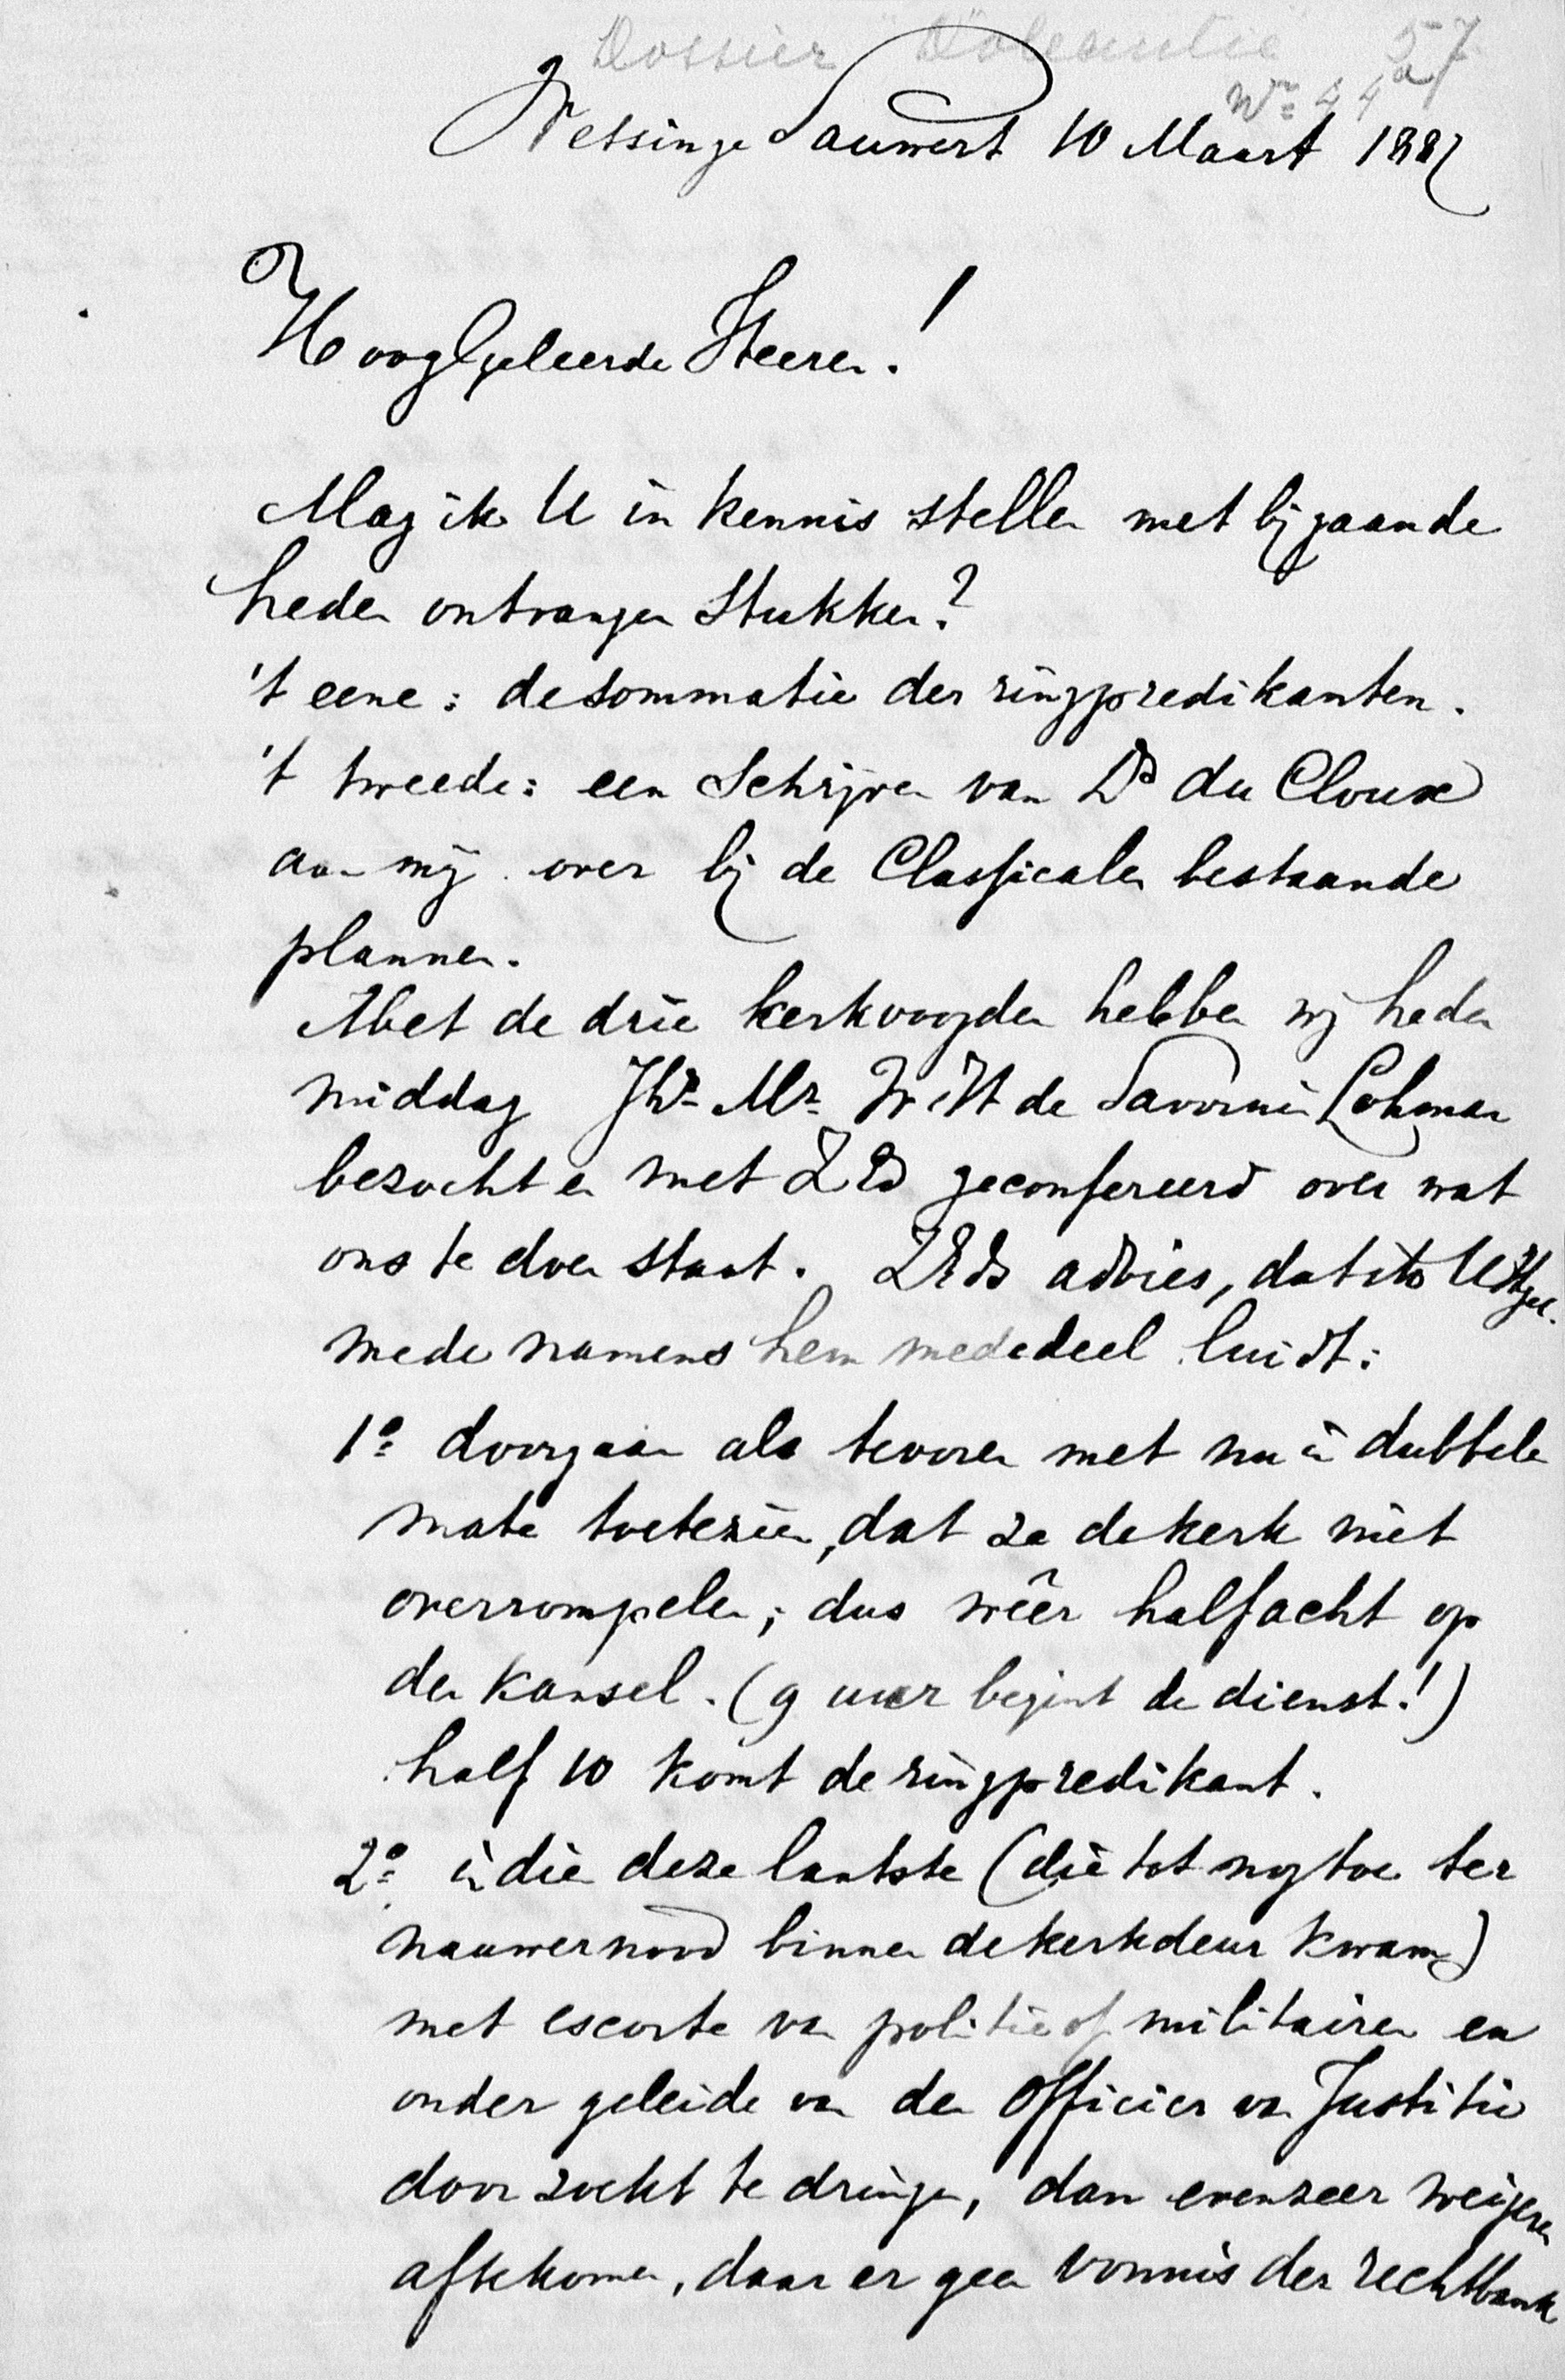 Dossier Doleantie 57
No 44a
Wetsinge Sauwert 10 Maart 1887
Hooggeleerde Heeren!
Mag ik U in kennis stellen met bijgaande
heden ontvangen Stukken?
't eene: de sommatie der ringpredikanten.
't tweede: een Schrijven van Ds du Cloux
aan mij over bij de Classicalen bestaande
plannen.
Met de drie kerkvoogden hebben wij heden
middag Jhr. Mr. W H de Savornin Lohman
bezocht en met ZEd geconfereerd over wat
ons te doen staat. ZEds advies, dat ik UHgel.
mede namens hem mededeel luidt:
1o doorgaan als tevoren met nu in dubbele
mate toetezien, dat ze de kerk niet
overrompelen; dus wêer half acht op
den kansel. (9 uur begint de dienst!)
half 10 komt de ringpredikant.
2o indien deze laatste (die tot nog toe ter
nauwernood binnen de kerkdeur kwam)
met escorte van politie of militairen en
onder geleide van den officier van Justitie
door zocht te dringen, dan evenzeer weigeren
aftekomen, daar er geen vonnis der rechtbank